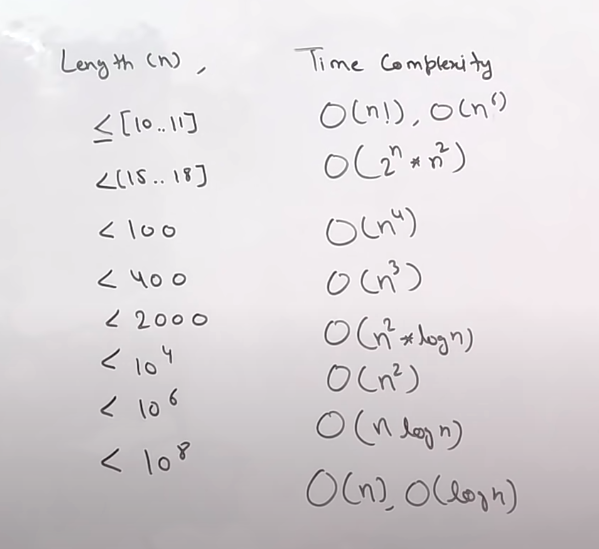 Length (n), Time Complexity
≤ [10..11] O(n!), O(n⁶)
<[15..18] O(2ⁿ * n²)
< 100 O(n⁴)
< 400 O(n³)
< 2000 O(n² * logn)
< 10⁴ O(n²)
< 10⁶ O(n logn)
< 10⁸ O(n), O(logn)